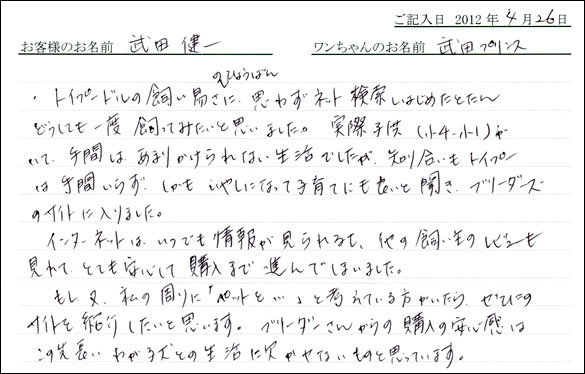 ご記入日 2012年 4月26日
お客様のお名前 武田 健一 ワンちゃんのお名前 武田プリンス
のひょうばん
・トイプードルの飼い易さに、思わずネット検索しはじめたとたん
どうしても一度飼ってみたいと思いました。実際子供(小4・小1)が
いて、手間はあまりかけられない生活でしたが、知り合いもトイプー
は手間いらず、しかもいやしになって子育てにも良いと聞き、ブリーダーズ
のサイトに入りました。
インターネットは、いつでも情報が見られるし、他の飼い主のレビューも
見れて、とても安心して購入まで進んでしまいました。
もし、又、私の周りに「ペットを…」と考えている方がいたら、ぜひこの
サイトを紹介したいと思います。ブリーダーさんからの購入の安心感は
この先長いわが子犬との生活に欠かせないものと思っています。